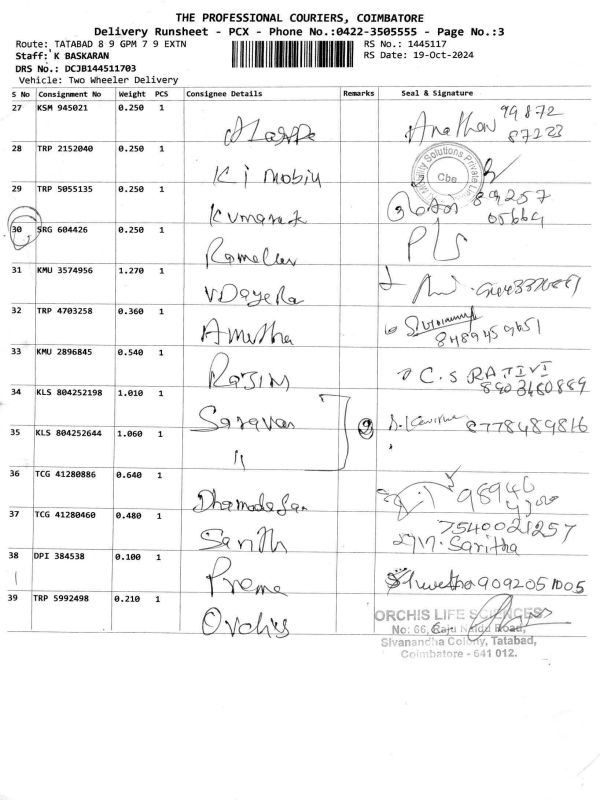 THE PROFESSIONAL COURIERS, COIMBATORE
Delivery Runsheet - PCX - Phone No.:0422-3505555 - Page No.:3
Route: TATABAD 8 9 GPM 7 9 EXTN RS No.: 1445117
Staff: K BASKARAN RS Date: 19-Oct-2024
DRS No.: DCJB144511703
Vehicle: Two Wheeler Delivery
S No Consignment No Weight PCS Consignee Details Remarks Seal & Signature
27 KSM 945021 0.250 1 99872
87223
28 TRP 2152040 0.250 1 Ki mobiu Solutions Private Cbe
29 TRP 5055135 0.250 1 Kumarak 89257
05664
30 SRG 604426 0.250 1 PLS
31 KMU 3574956 1.270 1
32 TRP 4703258 0.360 1 Amutha
33 KMU 2896845 0.540 1 RAJIN C.S RAJIVI
8903480889
34 KLS 804252198 1.010 1 Saravan 2 8778489816
35 KLS 804252644 1.060 1 "
36 TCG 41280886 0.640 1 Dhamodaran 98946
37 TCG 41280460 0.480 1 Sarith 7540021257
Saritha
38 DPI 384538 0.100 1 Preme Shwetha 9092051005
39 TRP 5992498 0.210 1 Orchis ORCHIS LIFE SCIENCES
No: 66, Raju Naidu Road,
Sivanandha Colony, Tatabad,
Coimbatore - 641 012.